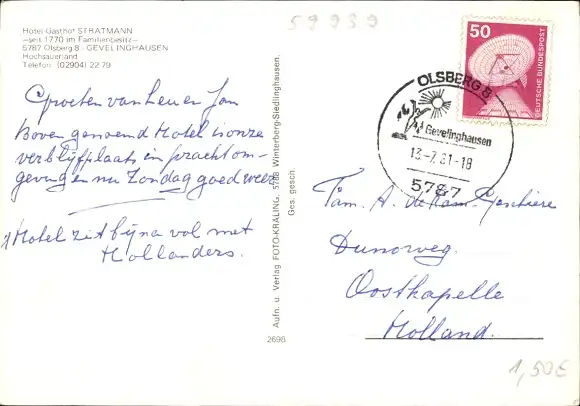 Hotel-Gasthof STRATMANN
—seit 1770 im Familienbesitz—
5787 Olsberg 8 - GEVELINGHAUSEN
Hochsauerland
Telefon: (02904) 22 79
Groeten van Leu en Jan
Boven genoemd Hotel is onze
verblijfplaats in pracht om-
gevingen nu Zondag goed weer
Hotel zit bijna vol met
Hollanders.
Aufn. u. Verlag FOTO-KRÄLING, 5788 Winterberg-Siedlinghausen.
Ges. gesch.
2698
59939
50
DEUTSCHE BUNDESPOST
OLSBERG 8
Gevelinghausen
13-7.81-18
5787
Fam. A. de
Dunoweg.
Oostkapelle
Holland.
1,50€